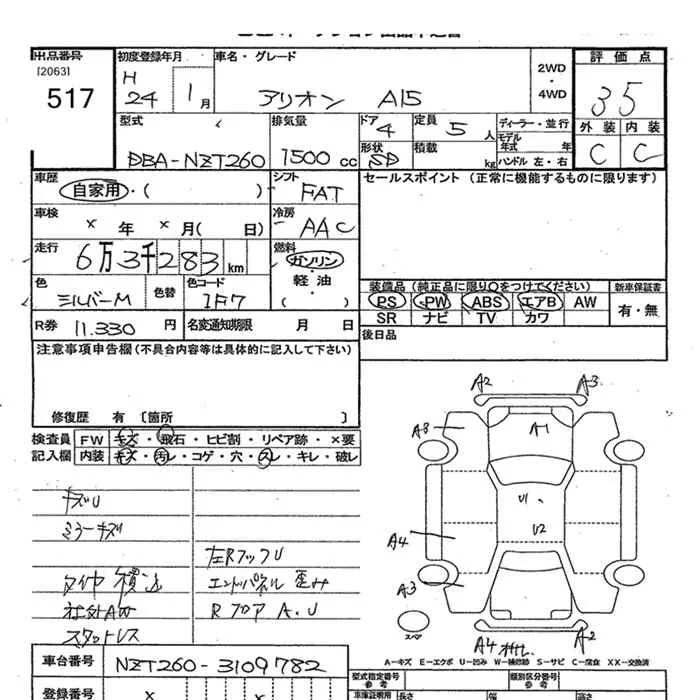 出品番号 初度登録年月 車名・グレード 2WD・4WD 評価点
[2063] H 24 1月 アリオン A15 35
517 外装 内装
型式 排気量 ドア 4 定員 5人 ディーラー・並行 C C
DBA-NZT260 1500cc 形状 SD 積載 kg モデル年式 年 ハンドル 左・右
車歴 自家用・( ) シフト FAT セールスポイント (正常に機能するものに限ります)
車検 × 年 × 月( 日) 冷房 AAC
走行 6万3千283km 燃料 ガソリン・軽油・( )
色 シルバーM 色替 色コード 1F7
装備品 (純正品に限り○をつけてください) 新車保証書
PS PW ABS エアB AW 有・無
SR ナビ TV カワ
R券 11.330 円 名変通知期限 月 日 後日品
注意事項申告欄(不具合内容等は具体的に記入して下さい)
修復歴 有 [箇所 ]
検査員 FW キズ・飛石・ヒビ割・リペア跡・×要
記入欄 内装 キズ・汚レ・コゲ・穴・スレ・キレ・破レ
A2 A3
A8 A1
U1
U2
A4
A3
スペア
A4 A2
キズU
ミラーキズ
左RフックU
タイヤ積込 エンドパネル歪み
社外AW Rフロア A.U
スタットレス
A-キズ E-エクボ U-凹み W-補修跡 S-サビ C-腐食 XX-交換済
車台番号 NZT260-3109782
型式指定番号 類別区分番号
参考 参考
登録番号 × ×
車庫証明用 長さ 幅 高さ